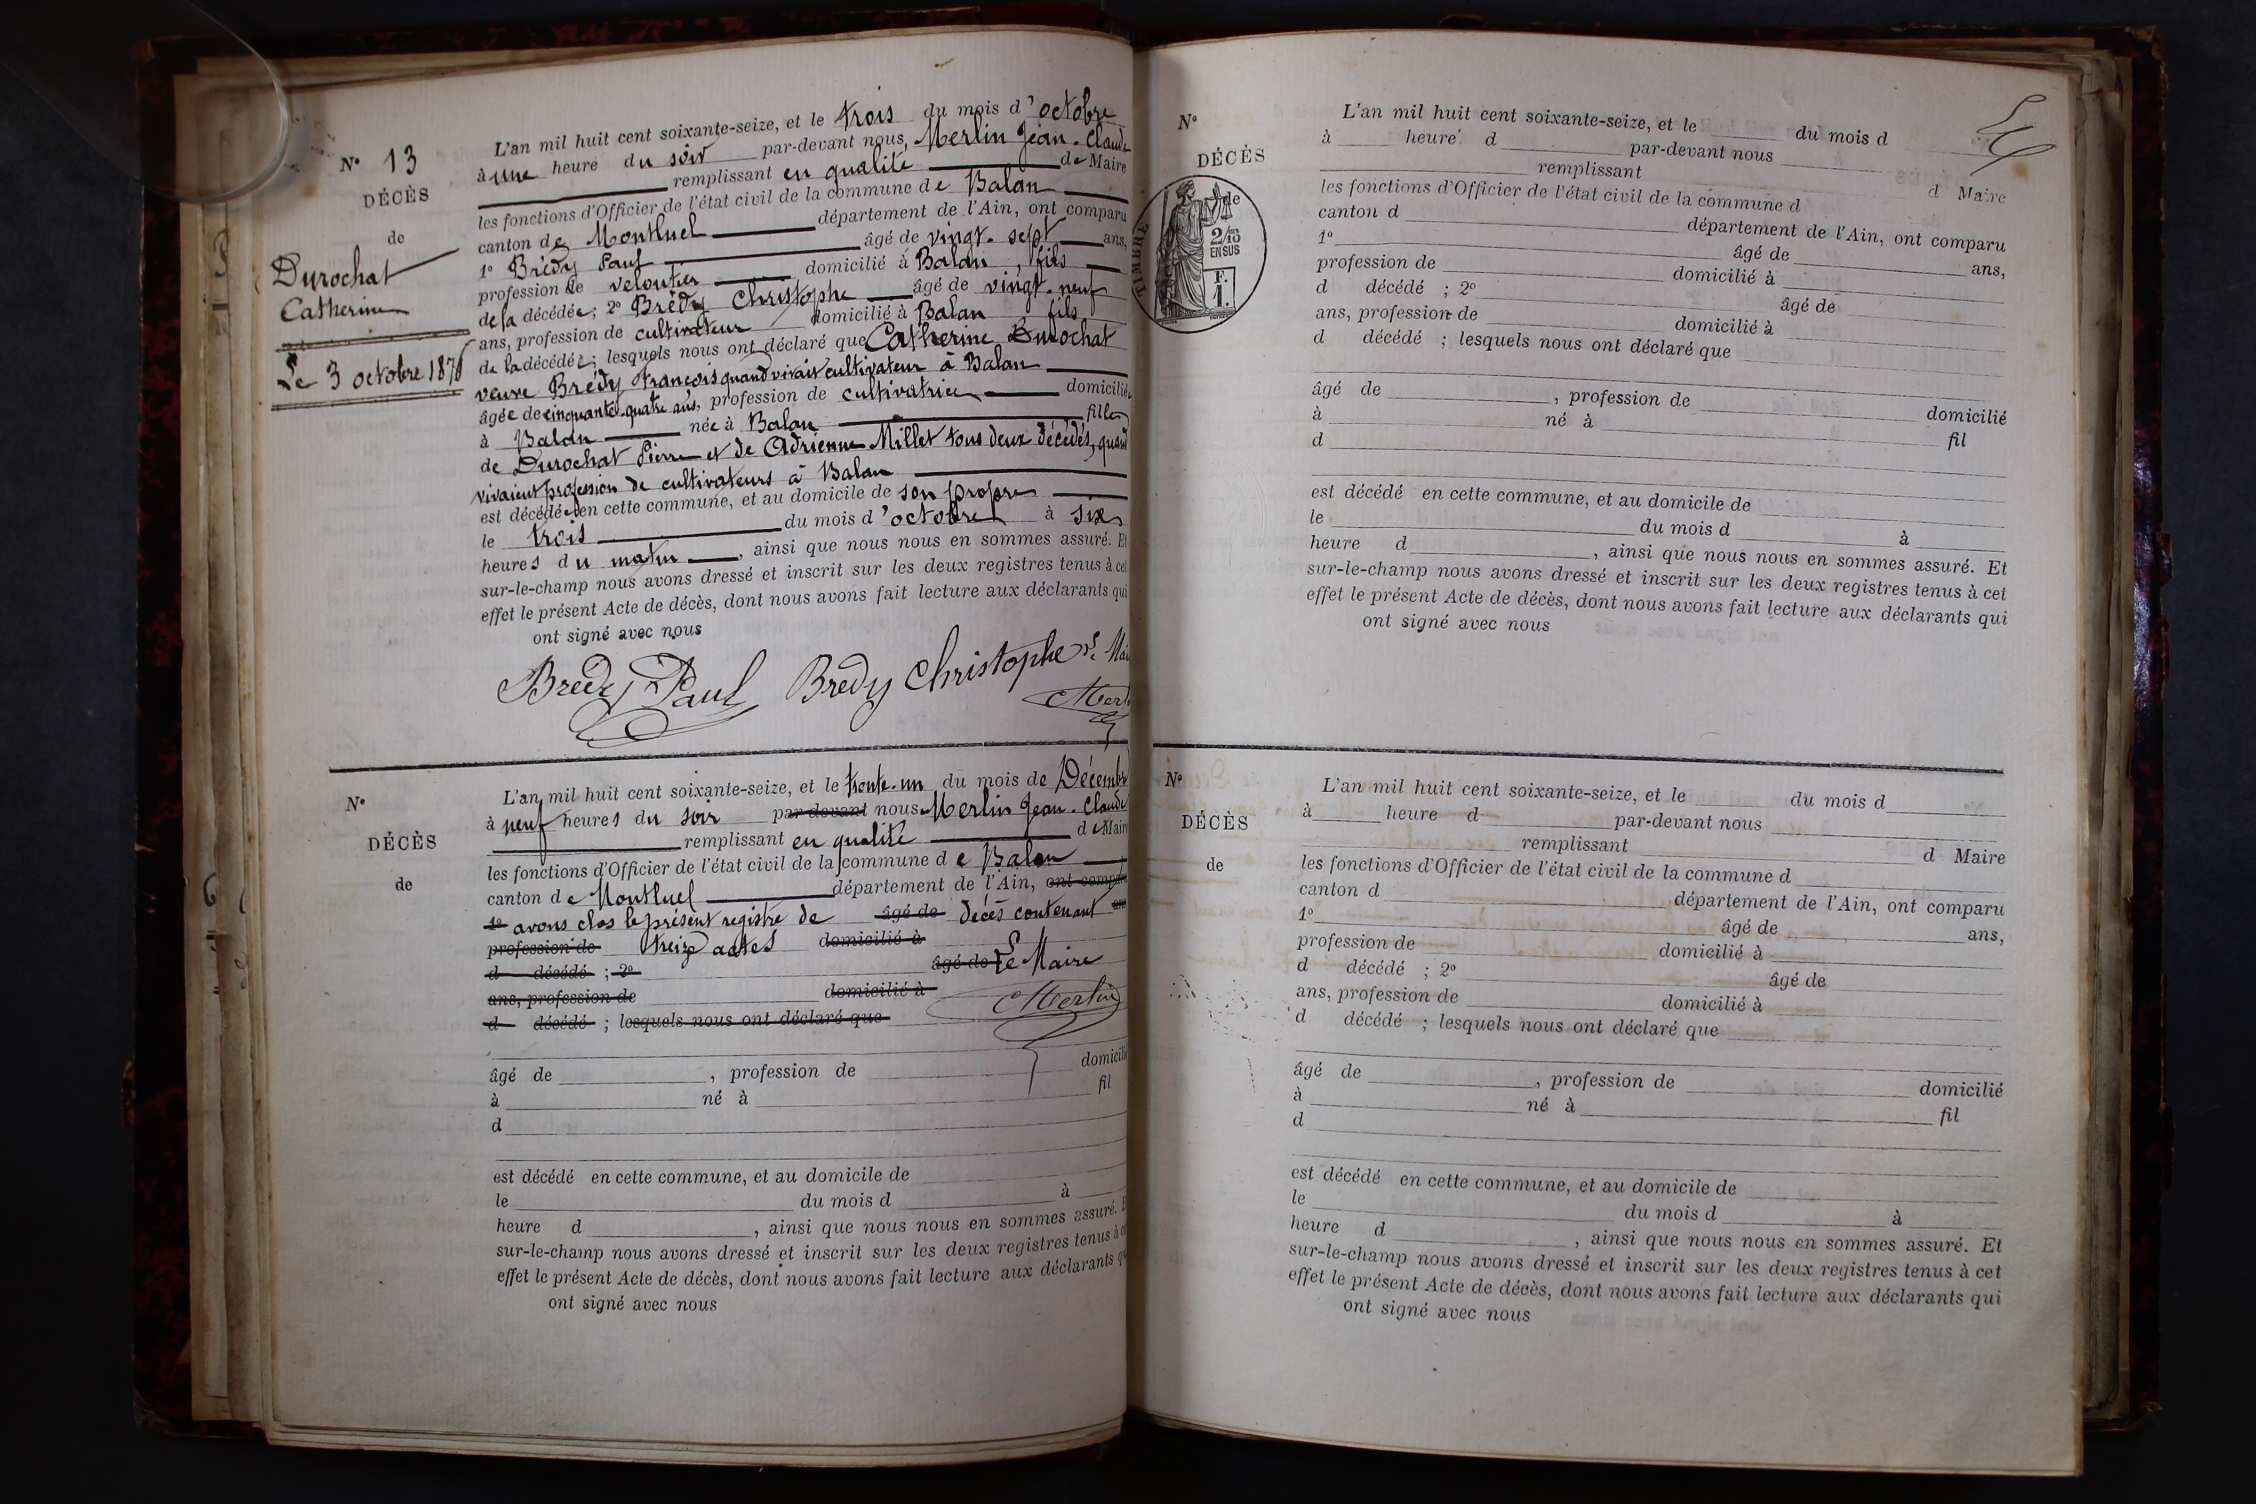 L'an mil huit cent soixante-seize, et le trois du mois d'octobre
à une heure du soir par-devant nous, Merlin Jean-Claude
remplissant en qualité de Maire
les fonctions d'Officier de l'état civil de la commune de Balan
canton de Montluel département de l'Ain, ont comparu
1º Brédy Paul âgé de vingt-sept ans,
profession de veloutier domicilié à Balan, fils
de la décédée; 2º Brédy Christophe âgé de vingt-neuf
ans, profession de cultivateur domicilié à Balan fils
de la décédée; lesquels nous ont déclaré que Catherine Durochat
veuve Brédy François quand vivait cultivateur à Balan
âgée de cinquante-quatre ans, profession de cultivatrice domiciliée
à Balan née à Balan fille
de Durochat Pierre et de Adrienne Millet tous deux décédés, quand
vivaient profession de cultivateurs à Balan
est décédée en cette commune, et au domicile de son propre
le trois du mois d'octobre à six
heures du matin, ainsi que nous nous en sommes assuré. Et
sur-le-champ nous avons dressé et inscrit sur les deux registres tenus à cet
effet le présent Acte de décès, dont nous avons fait lecture aux déclarants qui
ont signé avec nous
Bredy Paul Bredy Christophe
Nº 13
DÉCÈS
de
Durochat
Catherine
Le 3 octobre 1876
Nº
DÉCÈS
de
L'an mil huit cent soixante-seize, et le trente-un du mois de Décembre
à neuf heures du soir par-devant nous Merlin Jean-Claude
remplissant en qualité de Maire
les fonctions d'Officier de l'état civil de la commune de Balan
canton de Montluel département de l'Ain, ont comparu
1º avons clos le présent registre de âgé de décès contenant ans
profession de treize actes domicilié à
d décédé ; 2º âgé de Le Maire
ans, profession de domicilié à Merlin
d décédé ; lesquels nous ont déclaré que
âgé de , profession de domicilié
à né à fil
d
est décédé en cette commune, et au domicile de
le du mois d à
heure d , ainsi que nous nous en sommes assuré. E
sur-le-champ nous avons dressé et inscrit sur les deux registres tenus à ce
effet le présent Acte de décès, dont nous avons fait lecture aux déclarants qu
ont signé avec nous
Nº
DÉCÈS
de
TIMBRE
2/10
EN SUS
F.
1.
L'an mil huit cent soixante-seize, et le du mois d
à heure d par-devant nous
remplissant d Maire
les fonctions d'Officier de l'état civil de la commune d
canton d département de l'Ain, ont comparu
1º âgé de ans,
profession de domicilié à
d décédé ; 2º âgé de
ans, profession de domicilié à
d décédé ; lesquels nous ont déclaré que
âgé de , profession de domicilié
à né à fil
d
est décédé en cette commune, et au domicile de
le du mois d à
heure d , ainsi que nous nous en sommes assuré. Et
sur-le-champ nous avons dressé et inscrit sur les deux registres tenus à cet
effet le présent Acte de décès, dont nous avons fait lecture aux déclarants qui
ont signé avec nous
Nº
DÉCÈS
de
L'an mil huit cent soixante-seize, et le du mois d
à heure d par-devant nous
remplissant d Maire
les fonctions d'Officier de l'état civil de la commune d
canton d département de l'Ain, ont comparu
1º âgé de ans,
profession de domicilié à
d décédé ; 2º âgé de
ans, profession de domicilié à
d décédé ; lesquels nous ont déclaré que
âgé de , profession de domicilié
à né à fil
d
est décédé en cette commune, et au domicile de
le du mois d à
heure d , ainsi que nous nous en sommes assuré. Et
sur-le-champ nous avons dressé et inscrit sur les deux registres tenus à cet
effet le présent Acte de décès, dont nous avons fait lecture aux déclarants qui
ont signé avec nous